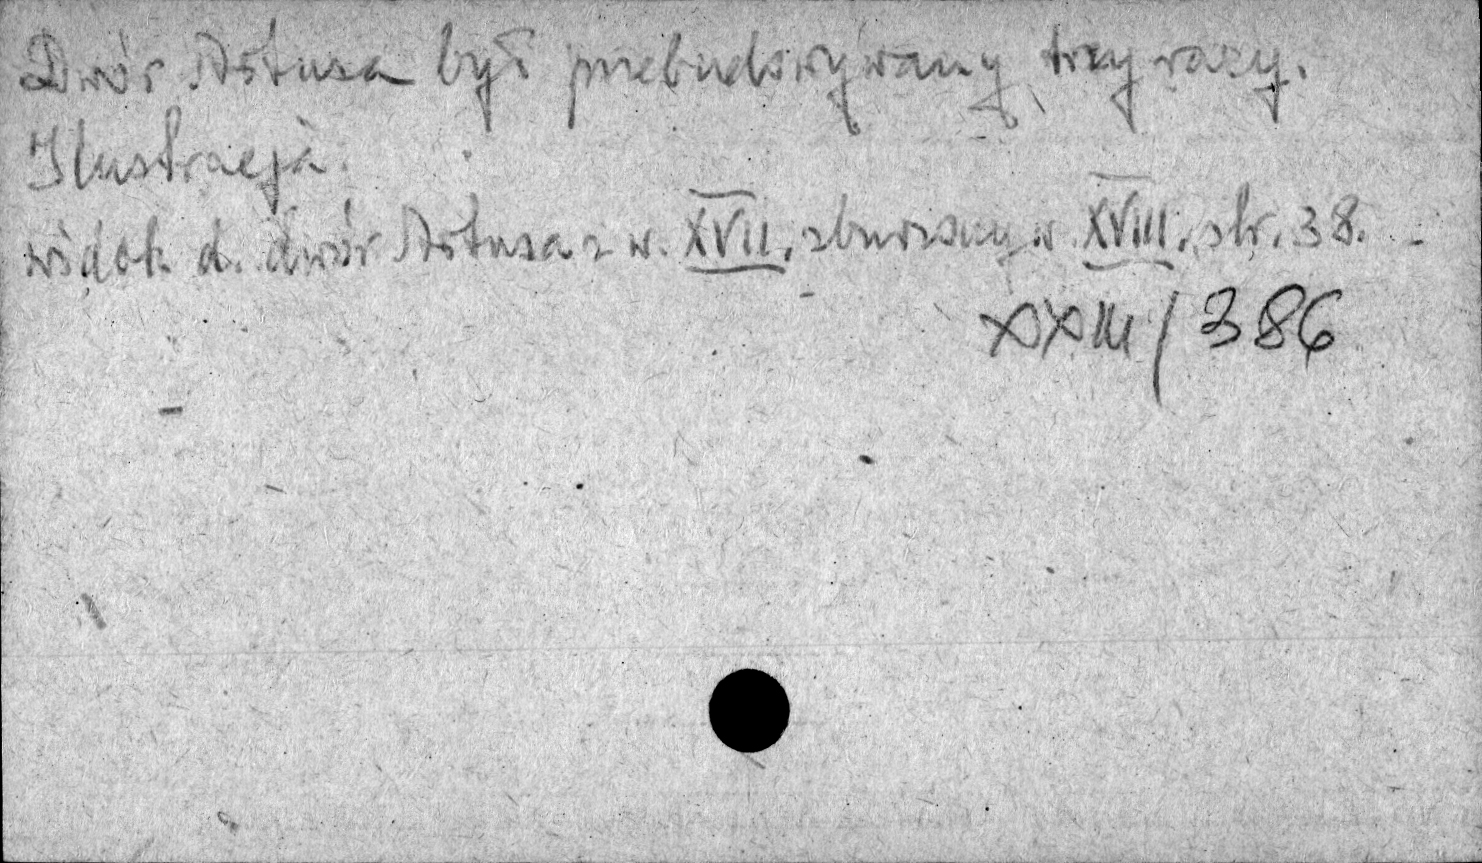 Dwór Artusa był przebudowywany trzy razy.
Ilustracja.
widok d. dwór Artusa z w. XVII. zburzony w. XVIII. str. 38.
XXIII/386